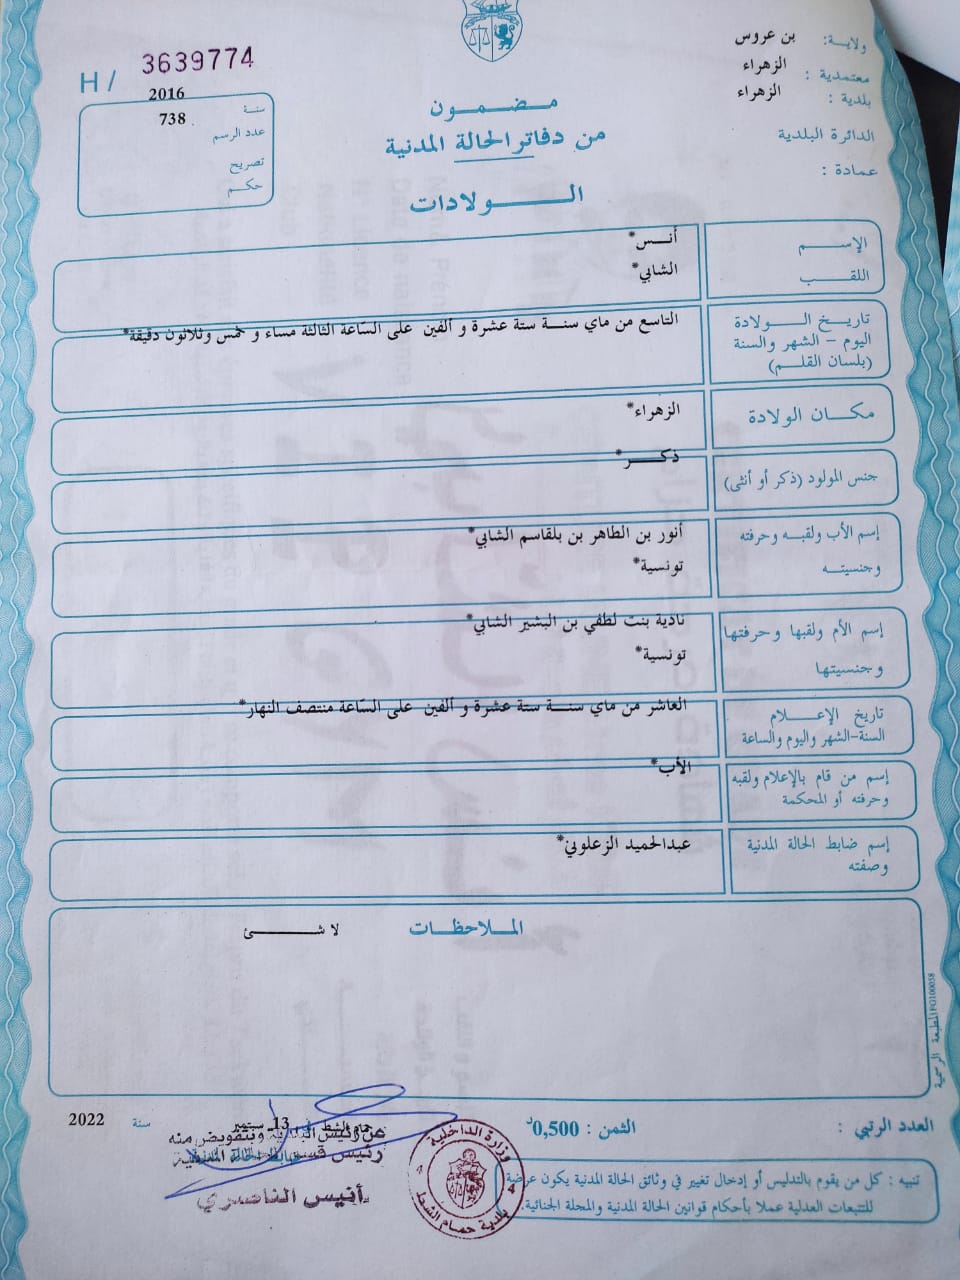 ولاية: بن عروس
معتمدية : الزهراء
بلدية : الزهراء
الدائرة البلدية
عمادة :
H / 3639774
سنة 2016
عدد الرسم 738
تصريح
حكم
مضمون
من دفاتر الحالة المدنية
الولادات
الإسم أنس*
اللقب الشابي*
تاريخ الولادة
اليوم - الشهر والسنة
(بلسان القلم)
التاسع من ماي سنة ستة عشرة و ألفين على الساعة الثالثة مساء و خمس وثلاثون دقيقة*
مكان الولادة الزهراء*
جنس المولود (ذكر أو أنثى) ذكر*
إسم الأب ولقبه وحرفته أنور بن الطاهر بن بلقاسم الشابي*
وجنسيته تونسية*
إسم الأم ولقبها وحرفتها نادية بنت لطفي بن البشير الشابي*
وجنسيتها تونسية*
تاريخ الإعلام
السنة-الشهر واليوم والساعة
العاشر من ماي سنة ستة عشرة و ألفين على الساعة منتصف النهار*
إسم من قام بالإعلام ولقبه
وحرفته أو المحكمة
الأب*
إسم ضابط الحالة المدنية
وصفته
عبدالحميد الزعلوني*
الملاحظات لا شئ
المطبعة الرسمية IFG100038
العدد الرتبي : الثمن : 0,500د
حمام الشط في 13 سبتمبر سنة 2022
عن رئيس البلدية وبتفويض منه
رئيس قسم الحالة المدنية
أنيس الناصري
وزارة الداخلية
بلدية حمام الشط
4
تنبيه : كل من يقوم بالتدليس أو إدخال تغيير في وثائق الحالة المدنية يكون عرضة
للتتبعات العدلية عملا بأحكام قوانين الحالة المدنية والمجلة الجنائية.